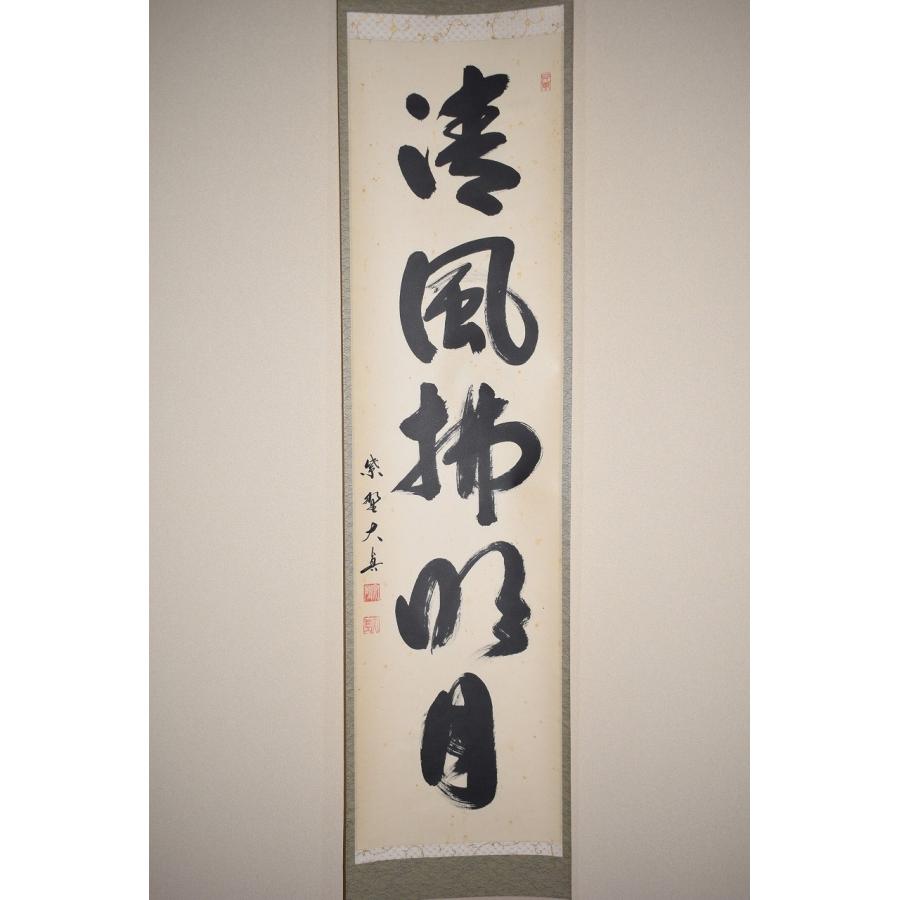 清風拂明月
紫野大真